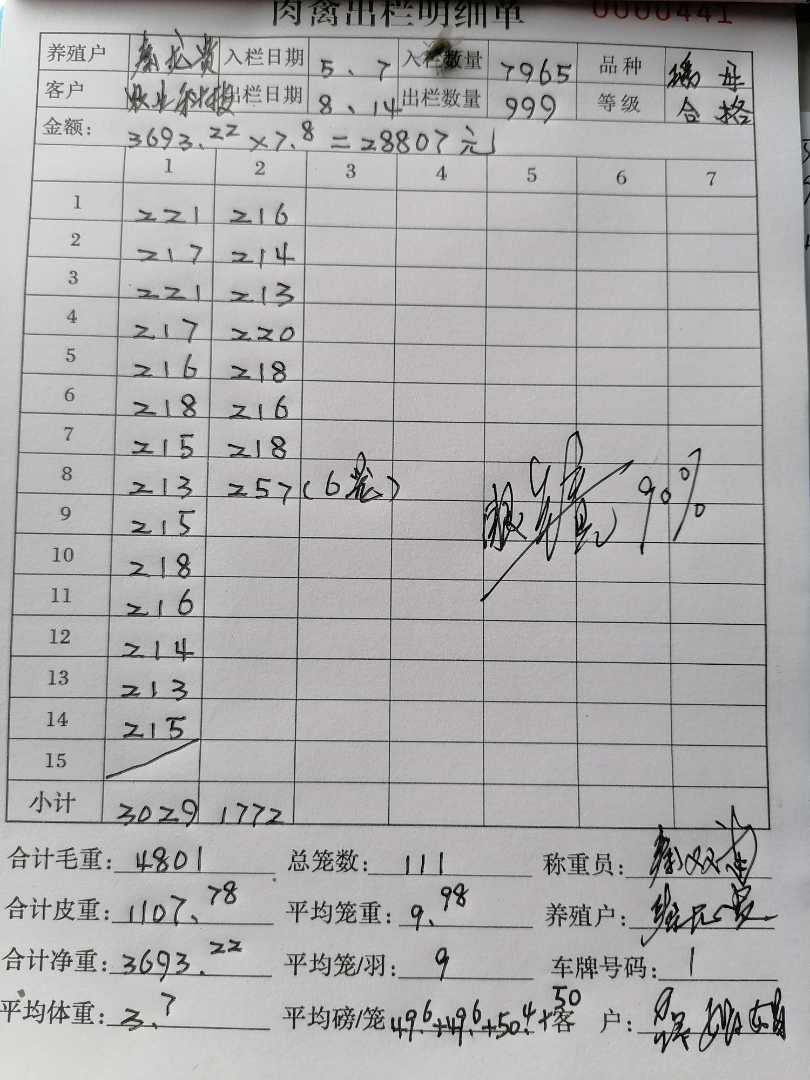 肉禽出栏明细单 0000441
养殖户 入栏日期 5、7 入栏数量 7965 品种
客户 出栏日期 8、14 出栏数量 999 等级 合格
金额: 3693.22×7.8=28807元
1 2 3 4 5 6 7
1 221 216
2 217 214
3 221 213
4 217 220
5 216 218
6 218 216
7 215 218
8 213 257(6笼)
9 215
10 218
11 216
12 214
13 213
14 215
15
90%
小计 3029 1772
合计毛重: 4801 总笼数: 111 称重员:
合计皮重: 1107.78 平均笼重: 9.98 养殖户:
合计净重: 3693.22 平均笼/羽: 9 车牌号码: 1
平均体重: 3.7 平均磅/笼 49.6+49.6+50.4+50 客 户: